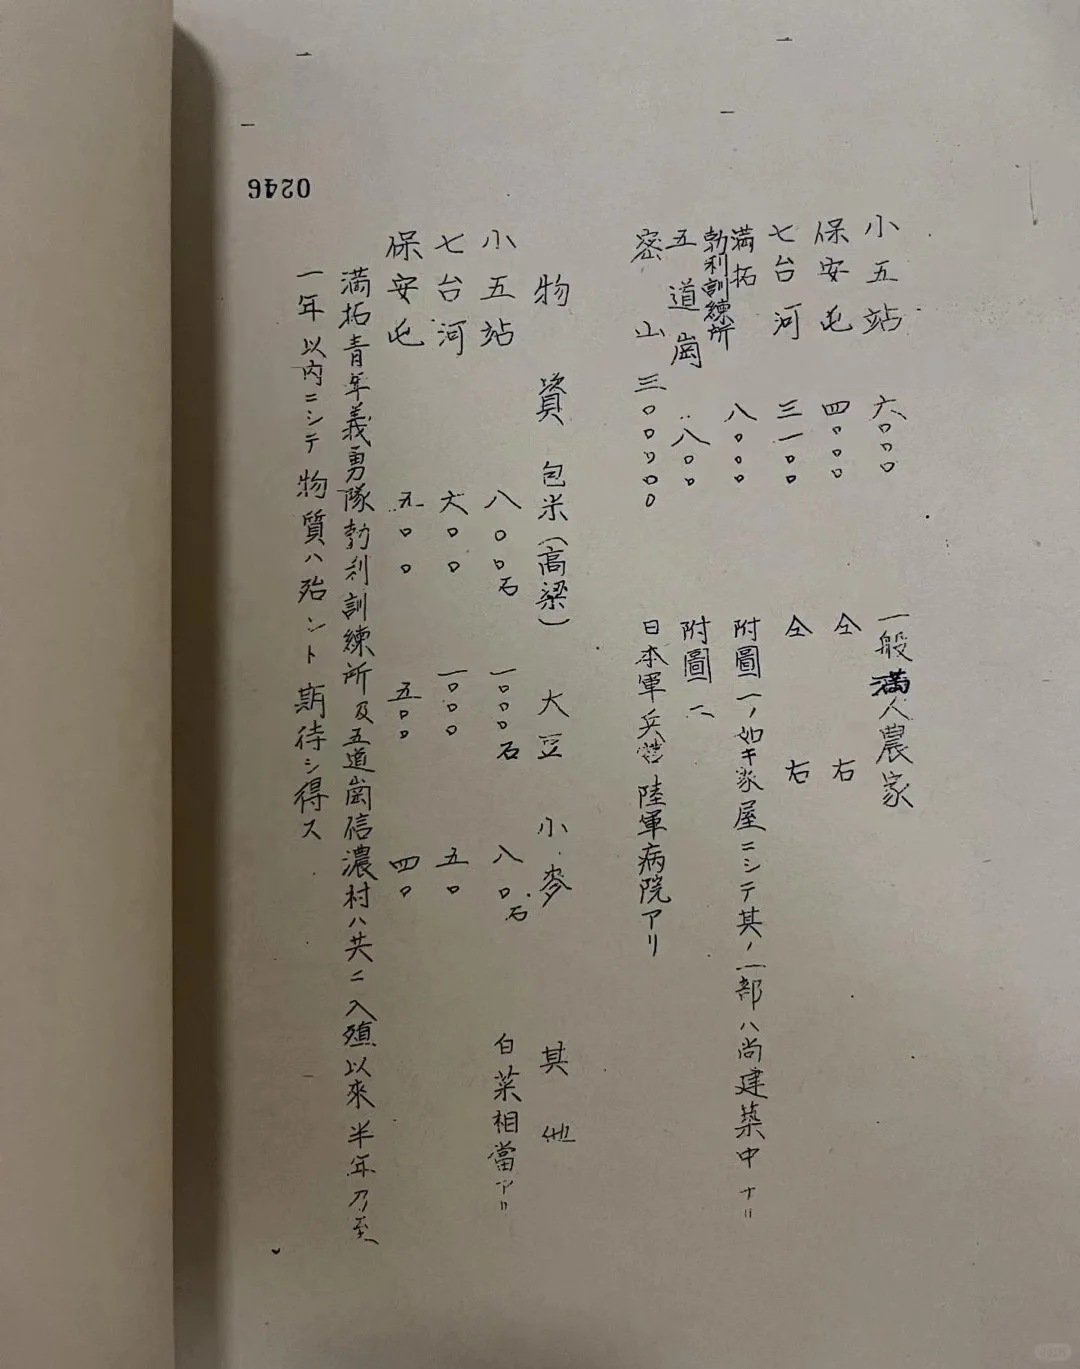 小五站 六〇〇〇 一般満人農家
保安屯 四〇〇〇 仝右
七台河 三一〇〇 仝右
満拓勃利訓練所 八〇〇〇 附圖一ノ如キ家屋ニシテ其ノ一部ハ尚建築中ナリ
五道崗 八〇〇 附圖二
密山 三〇〇〇〇 日本軍兵営陸軍病院アリ
物資 包米(高梁) 大豆 小麥 其他
小五站 八〇〇石 一〇〇〇石 八〇石 白菜相當アリ
七台河 六〇〇 一〇〇〇 五〇
保安屯 五〇〇 五〇〇 四〇
満拓青年義勇隊勃利訓練所及五道崗信濃村ハ共ニ入殖以來半年乃至
一年以内ニシテ物質ハ殆ント期待シ得ス
0246